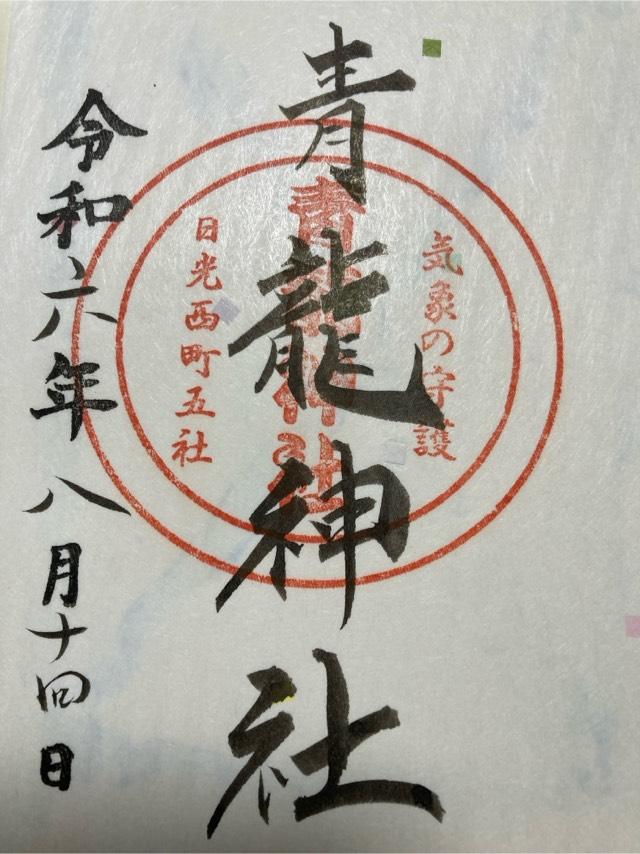 気象の守護
青龍神社
青龍神社
日光西町五社
令和六年八月十四日